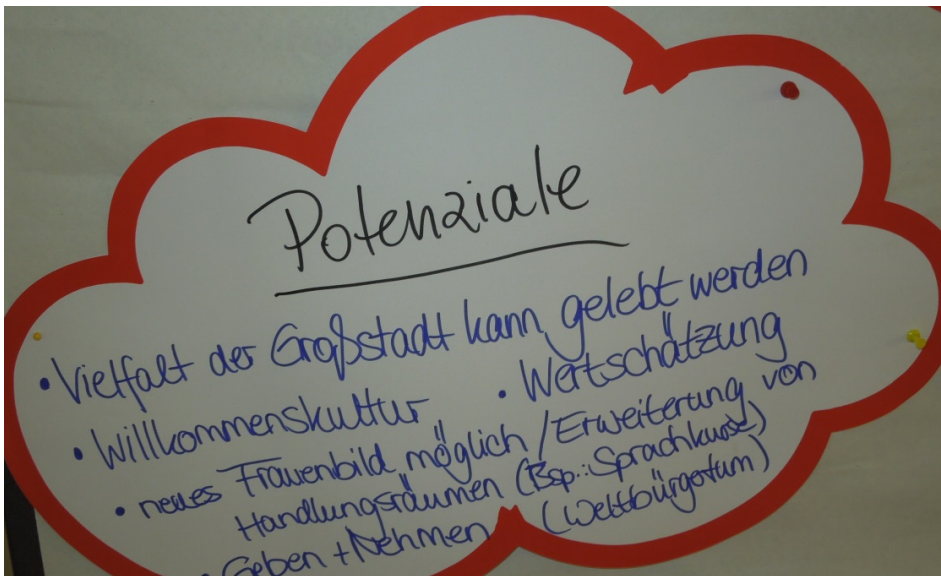 Potenziale
• Vielfalt der Großstadt kann gelebt werden
• Willkommenskultur • Wertschätzung
• neues Frauenbild möglich / Erweiterung von
Handlungsräumen (Bsp.: Sprachkurse)
• Geben + Nehmen (Weltbürgertum)